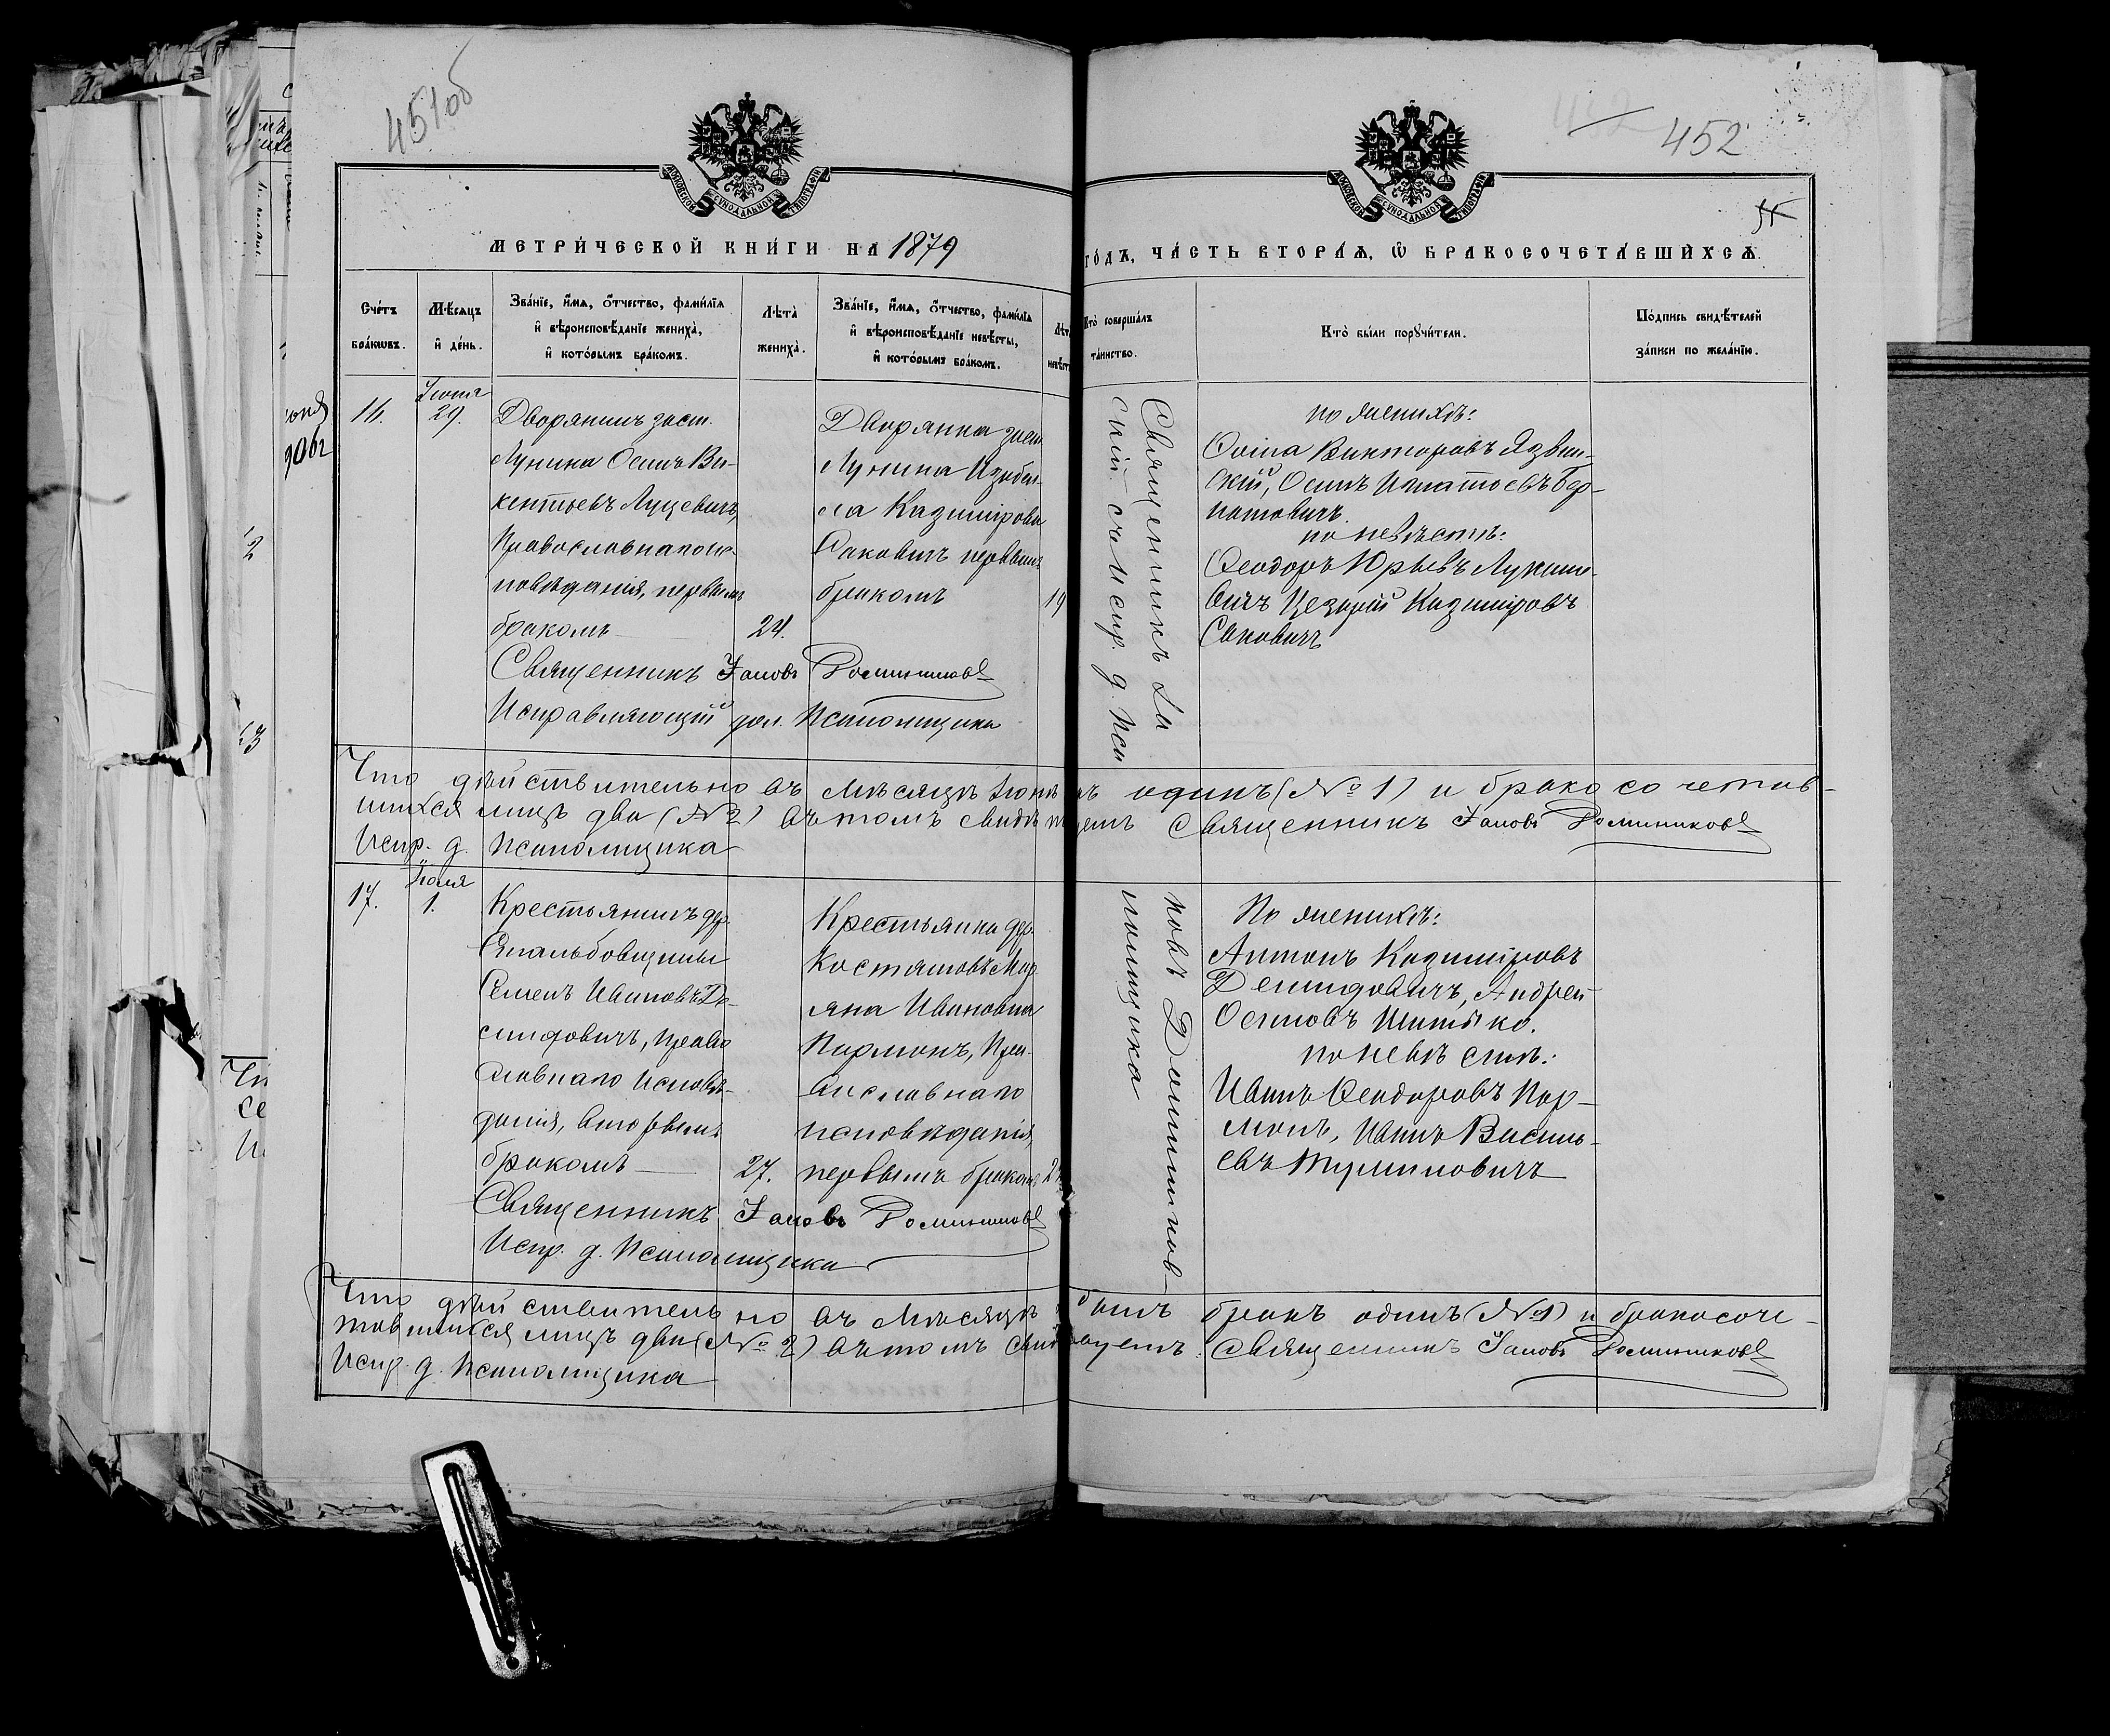 451об
452
МЕТРИЧЕСКОЙ КНИГИ НА 1879
ГОДЪ, ЧАСТЬ ВТОРАЯ, Ѡ БРАКОСОЧЕТАВШИХСЯ.
Счетъ браковъ.
Мѣсяцъ и день.
Званіе, имя, отчество, фамилія
и вѣроисповѣданіе жениха,
и которымъ бракомъ.
Лѣта
жениха.
Званіе, имя, отчество, фамилія
и вѣроисповѣданіе невѣсты,
и которымъ бракомъ.
Кто совершалъ
таинство.
Кто были поручители.
Подпись свидѣтелей
записи по желанію.
16.
Іюня
29.
Дворянинъ заст.
Лунина Осипъ Ви-
кентьевъ Луцевичъ,
Православнаго ис-
повѣданія, первымъ
бракомъ
24.
Дворянка заст.
Лунина Изабел-
ла Казимірова
Саковичъ первымъ
бракомъ
19
Священникъ Іа
скій с. ч. и спр. д. Пса
по женихѣ:
Викторовъ Ядвин-
скій, Осипъ Игнатьевъ Бор-
натовичъ
по невѣстѣ:
Ѳеодоръ Юрьевъ Лукаше-
вичъ Цезарій Казиміровъ
Саковичъ
Священникъ Іаковъ Доминиковъ
Исправляющій дол. Псаломщика
Что дѣйствительно въ мѣсяцѣ Іюнѣ одинъ (№ 1) и бракосочетав-
шихся лицъ два (№ 2) въ томъ свидѣтельствуемъ Священникъ Іаковъ Доминиковъ
Испр. д. Псаломщика
17.
Іюля
1.
Крестьянинъ дер.
Семенъ Ивановъ Де-
мидовичъ, Право
славнаго исповѣ-
данія, вторымъ
бракомъ
27.
Крестьянка дер.
Костяшовъ Мар
яна Ивановна
Пармонъ, Пра-
вославнаго
исповѣданія
первымъ бракомъ
ковъ Доминиковъ
ломщика
По женихѣ:
Антонъ Казиміровъ
Демидовичъ, Андрей
Осиповъ Шитыко.
по невѣстѣ:
Иванъ Ѳеодоровъ Пар-
монъ, Иванъ Василь-
евъ Тумиловичъ
Священникъ Іаковъ Доминиковъ
Испр. д. Псаломщика
Что дѣйствительно въ мѣсяцѣ бракъ одинъ (№ 1) и бракосоче-
тавшихся лицъ два (№ 2) въ томъ Священникъ Іаковъ Доминиковъ
Испр. д. Псаломщика